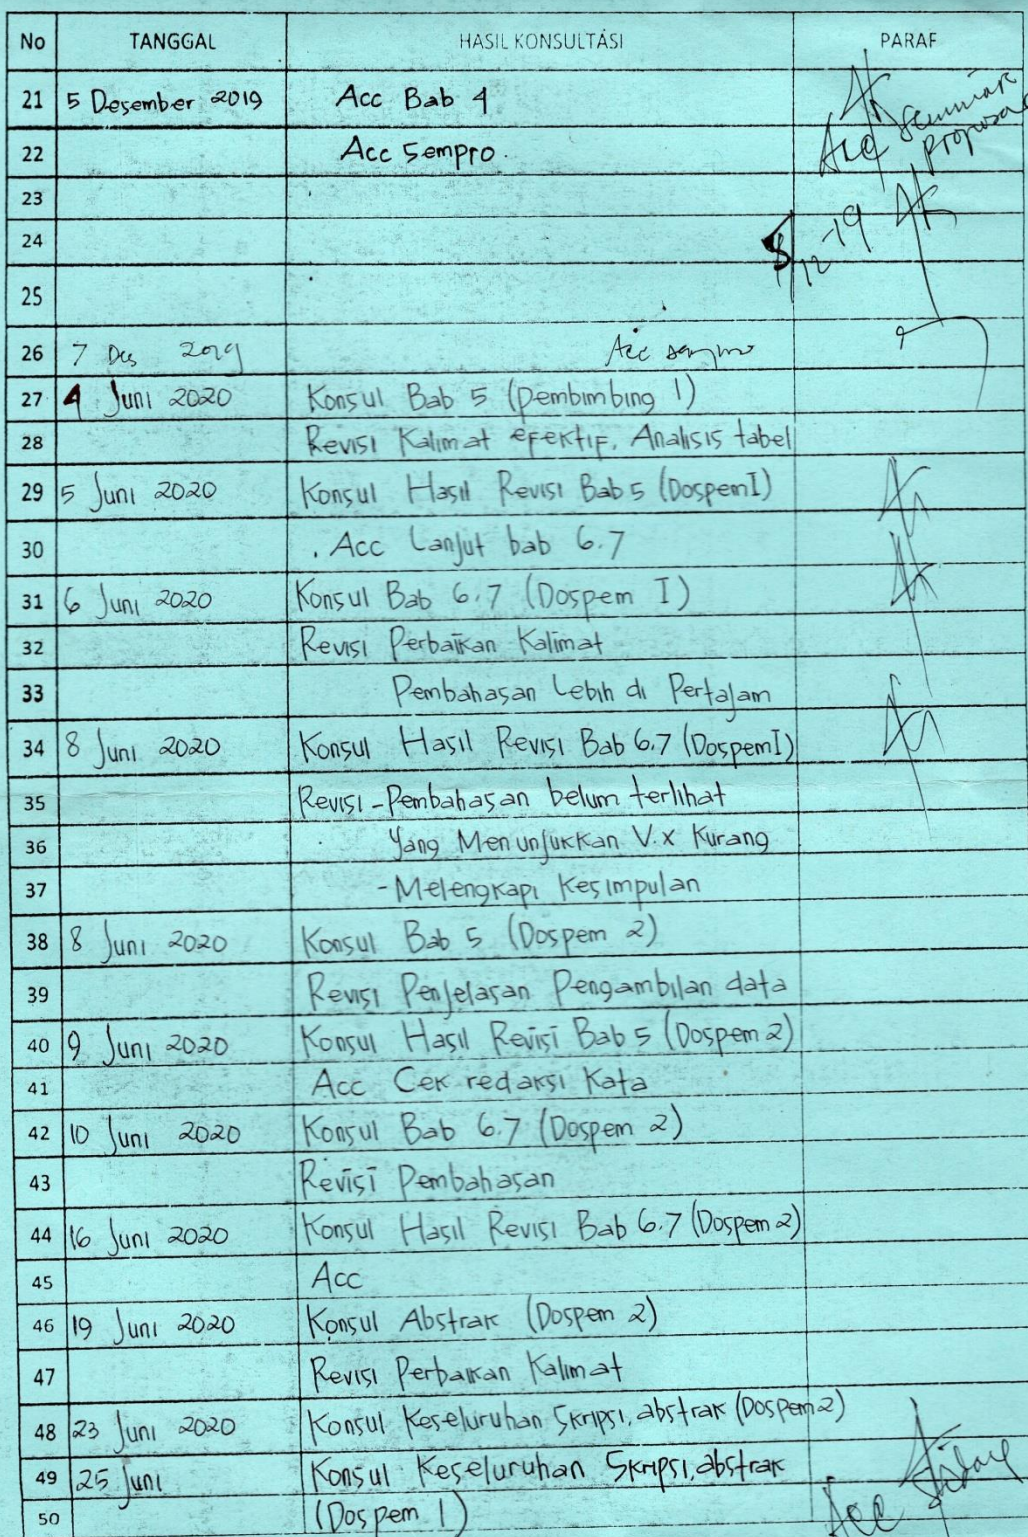 No TANGGAL HASIL KONSULTASI PARAF
21 5 Desember 2019 Acc Bab 4
Acc Seminar Proposal
22 Acc Sempro.
23
24 5/12-19
25
26 7 Des 2019 Acc sempro
27 4 Juni 2020 Konsul Bab 5 (Pembimbing 1)
28 Revisi Kalimat efektif. Analisis tabel
29 5 Juni 2020 Konsul Hasil Revisi Bab 5 (Dospem I)
30 . Acc Lanjut bab 6.7
31 6 Juni 2020 Konsul Bab 6.7 (Dospem I)
32 Revisi Perbaikan Kalimat
33 Pembahasan Lebih di Pertajam
34 8 Juni 2020 Konsul Hasil Revisi Bab 6.7 (Dospem I)
35 Revisi - Pembahasan belum terlihat
36 Yang Menunjukkan V.x Kurang
37 - Melengkapi Kesimpulan
38 8 Juni 2020 Konsul Bab 5 (Dospem 2)
39 Revisi Penjelasan Pengambilan data
40 9 Juni 2020 Konsul Hasil Revisi Bab 5 (Dospem 2)
41 Acc Cek redaksi Kata
42 10 Juni 2020 Konsul Bab 6.7 (Dospem 2)
43 Revisi Pembahasan
44 16 Juni 2020 Konsul Hasil Revisi Bab 6.7 (Dospem 2)
45 Acc
46 19 Juni 2020 Konsul Abstrak (Dospem 2)
47 Revisi Perbaikan Kalimat
48 23 Juni 2020 Konsul Keseluruhan Skripsi, abstrak (Dospem 2)
49 25 Juni Konsul Keseluruhan Skripsi, abstrak
50 (Dospem 1) Acc Sidang